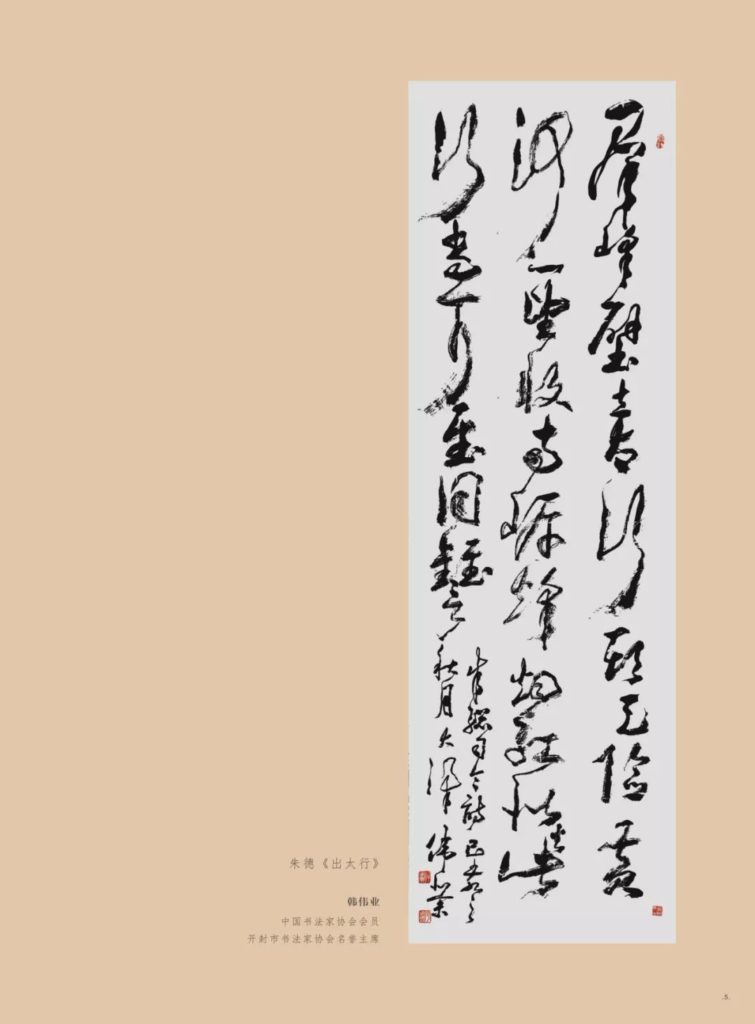 群峰壁立太行头天险黄
河一望收两岸烽烟红似火此
行当可慰同雠
朱总司令诗己亥之
秋月大梁伟业
朱德《出太行》
韩伟业
中国书法家协会会员
开封市书法家协会名誉主席
.5.